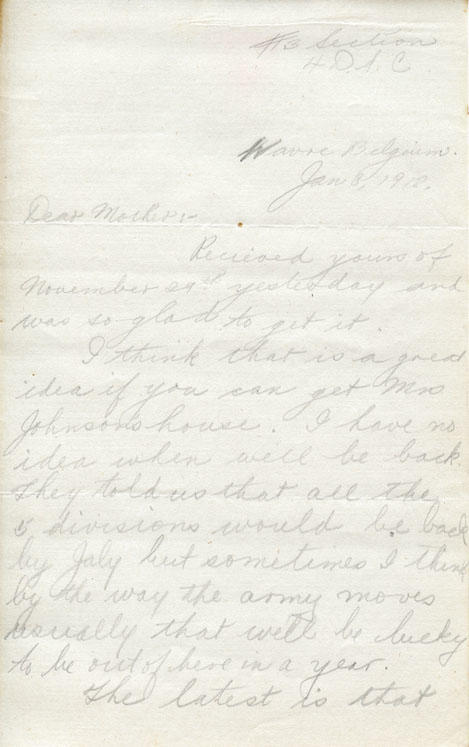 #3 Section
4 D.A.C
Wavre Belgium.
Jan 8, 1919.
Dear Mother:-
Recieved yours of
November 29th yesterday and
was so glad to get it.
I think that is a great
idea if you can get Mrs
Johnsons house. I have no
idea when we'll be back.
They told us that all the
5 divisions would be back
by July but sometimes I think
by the way the army moves
usually that we'll be lucky
to be out of here in a year.
The latest is that